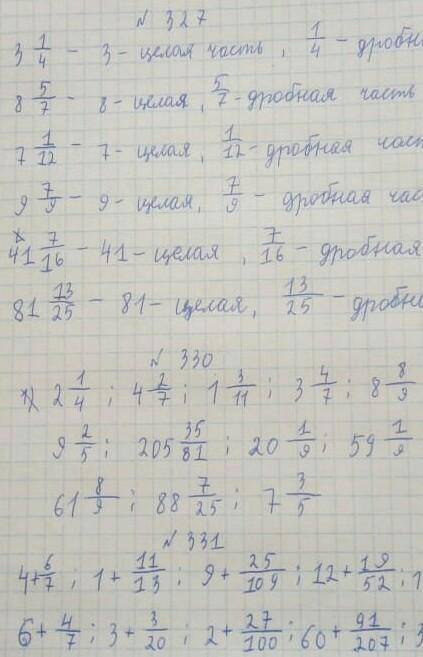 № 327
3 1/4 - 3 - целая часть, 1/4 - дробн
8 5/7 - 8 - целая, 5/7 - дробная часть
7 1/12 - 7 - целая, 1/12 - дробная част
9 7/9 - 9 - целая, 7/9 - дробная час
41 7/16 - 41 - целая, 7/16 - дробная
81 13/25 - 81 - целая, 13/25 - дробн
№ 330
2 1/4 ; 4 2/7 ; 1 3/11 ; 3 4/7 ; 8 8/9
9 2/5 ; 205 35/81 ; 20 1/9 ; 59 1/9
61 8/9 ; 88 7/25 ; 7 3/5
№ 331
4 + 6/7 ; 1 + 11/13 ; 9 + 25/109 ; 12 + 19/52 ; 1
6 + 4/7 ; 3 + 3/20 ; 2 + 27/100 ; 60 + 91/207 ; 3